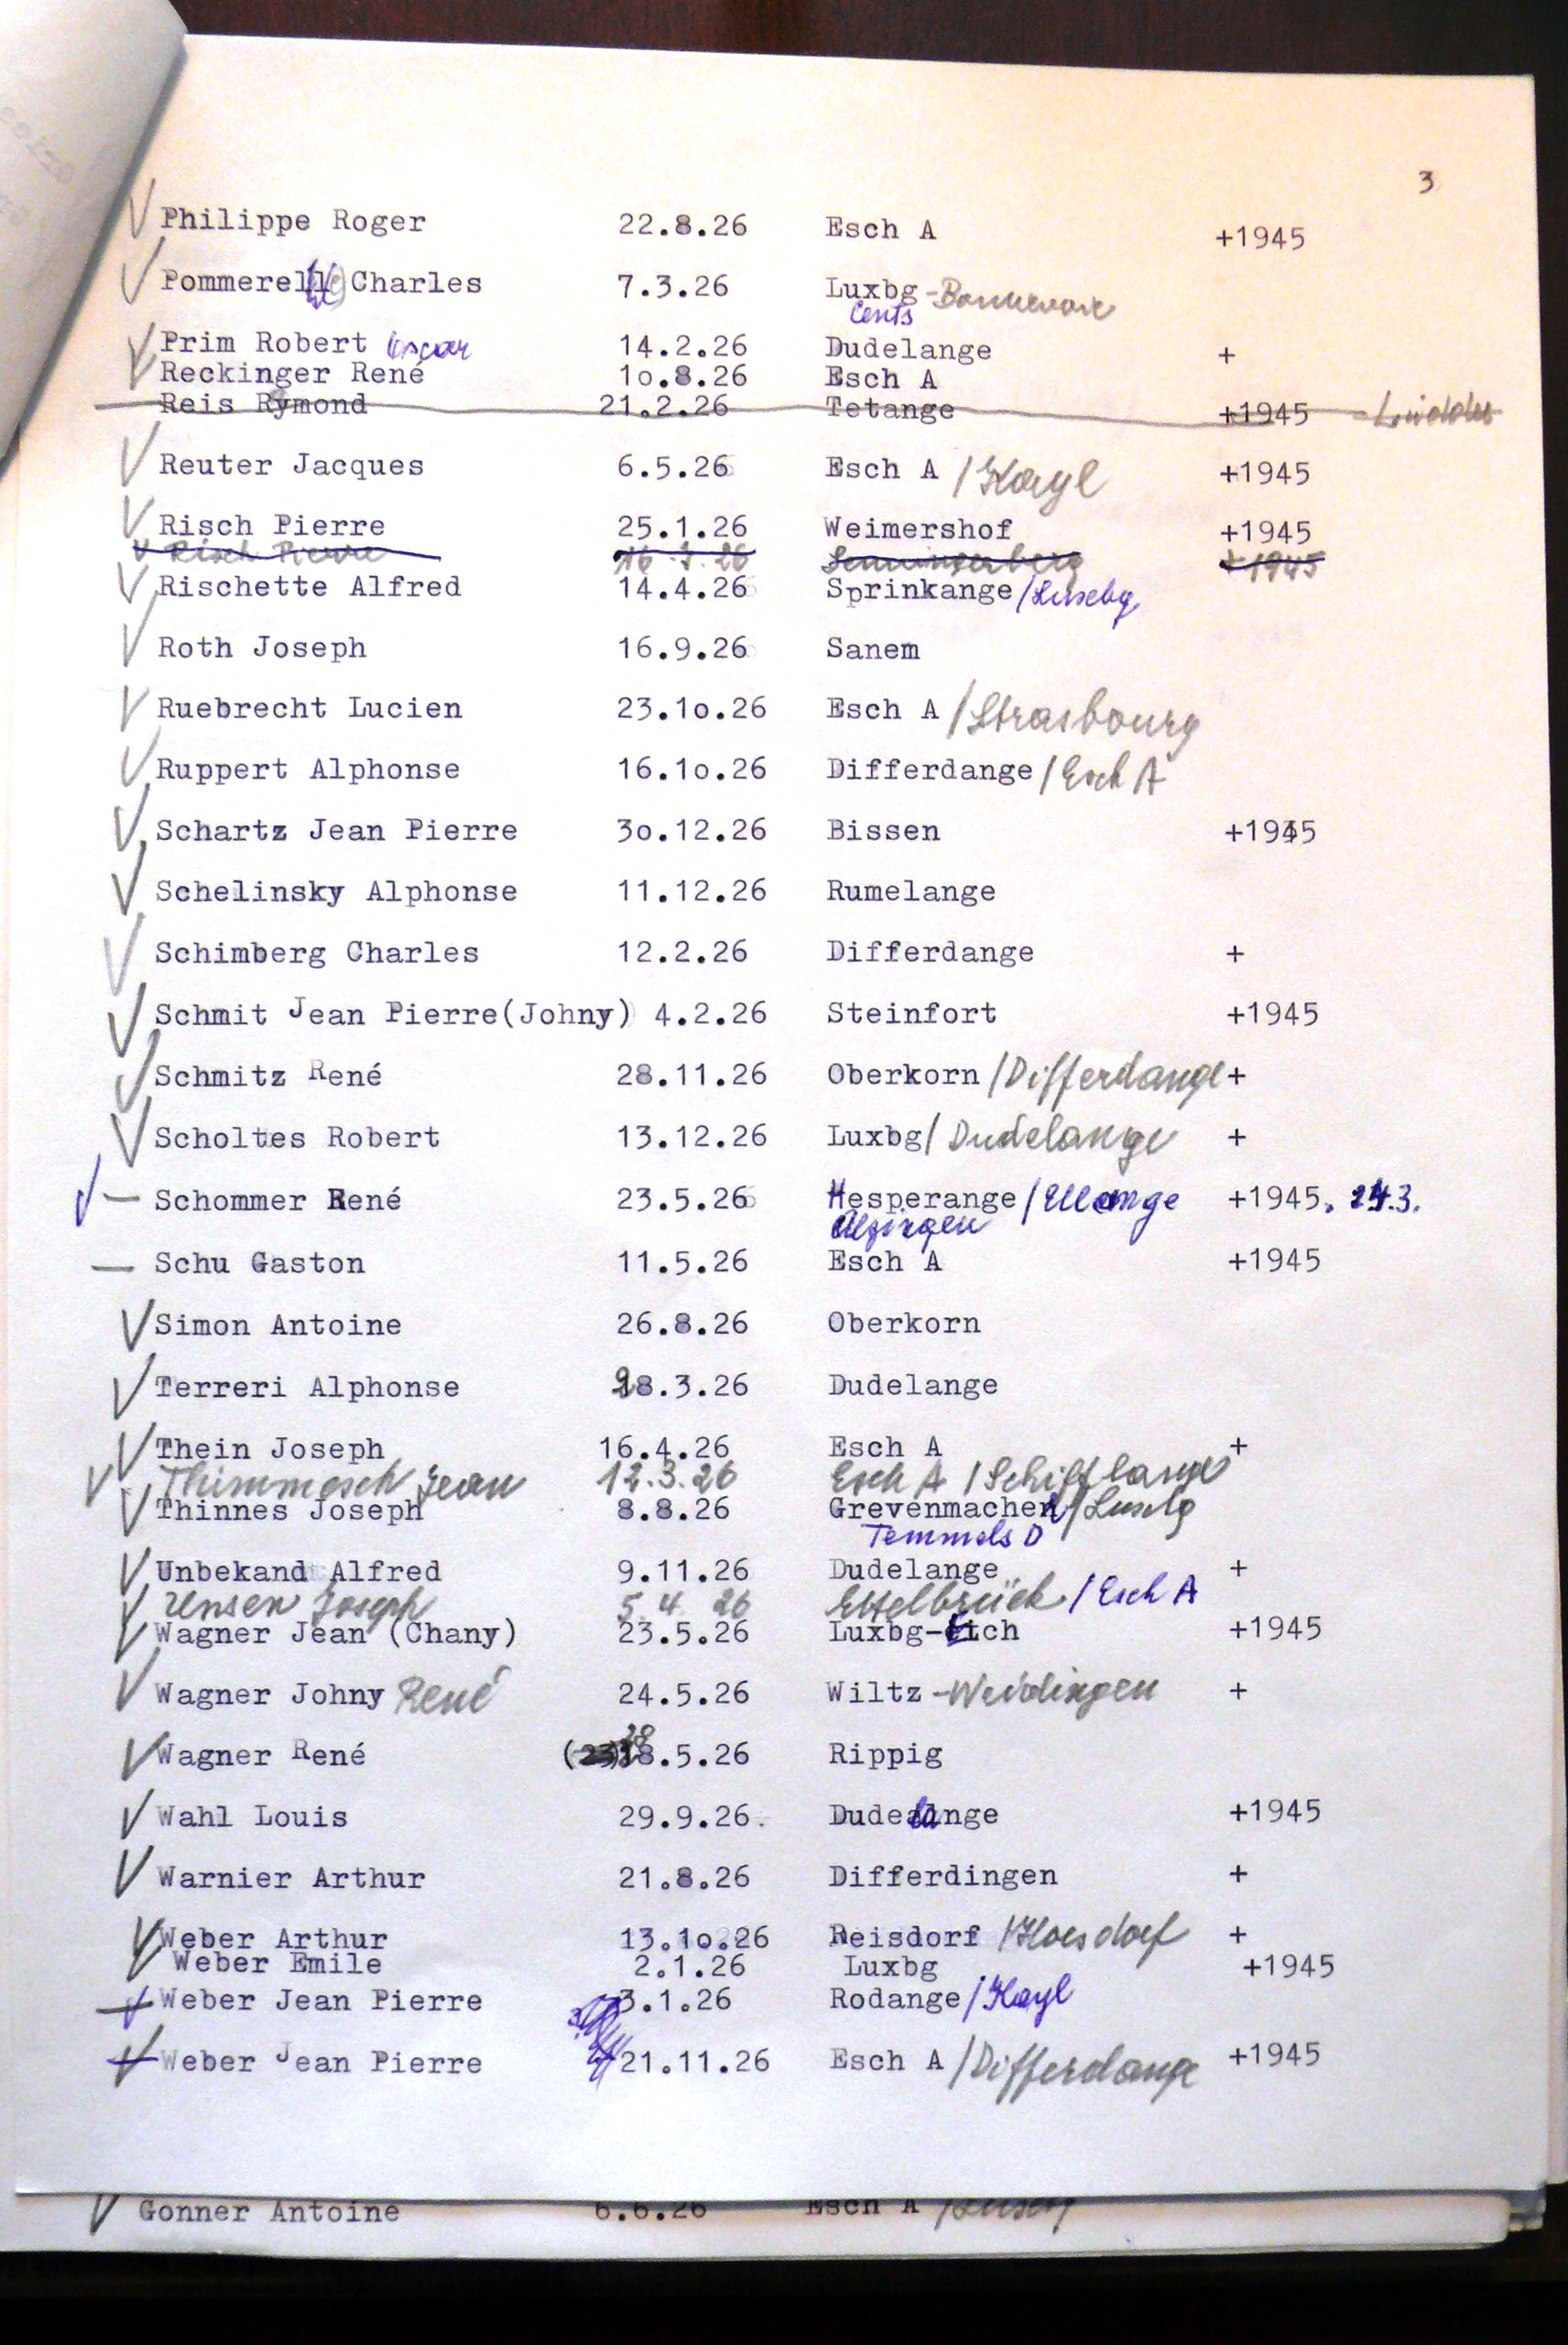 3
Philippe Roger 22.8.26 Esch A +1945
Pommerell Charles 7.3.26 Luxbg -Bonnevoie
Cents
Prim Robert Oscar 14.2.26 Dudelange +
Reckinger René 1o.8.26 Esch A
Reis Rymond 21.2.26 Tetange +1945
Reuter Jacques 6.5.26 Esch A /Kayl +1945
Risch Pierre 25.1.26 Weimershof +1945
Risch Pierre 16.7.26 Senningerberg +1945
Rischette Alfred 14.4.26 Sprinkange /Luxbg
Roth Joseph 16.9.26 Sanem
Ruebrecht Lucien 23.1o.26 Esch A /Strasbourg
Ruppert Alphonse 16.1o.26 Differdange /Esch A
Schartz Jean Pierre 3o.12.26 Bissen +1945
Schelinsky Alphonse 11.12.26 Rumelange
Schimberg Charles 12.2.26 Differdange +
Schmit Jean Pierre(Johny) 4.2.26 Steinfort +1945
Schmitz René 28.11.26 Oberkorn /Differdange +
Scholtes Robert 13.12.26 Luxbg/ Dudelange +
Schommer René 23.5.26 Hesperange /Ellange +1945. 24.3.
Alzingen
Schu Gaston 11.5.26 Esch A +1945
Simon Antoine 26.8.26 Oberkorn
Terreri Alphonse 28.3.26 Dudelange
Thein Joseph 16.4.26 Esch A +
Thimmesch Jean 12.3.26 Esch A /Schifflange
Thinnes Joseph 8.8.26 Grevenmacher /Luxbg
Temmels D
Unbekand Alfred 9.11.26 Dudelange +
Unsen Joseph 5.4.26 Ettelbrück /Esch A
Wagner Jean (Chany) 23.5.26 Luxbg-Eich +1945
Wagner Johny René 24.5.26 Wiltz -Weidingen +
Wagner René (23) 28.5.26 Rippig
Wahl Louis 29.9.26. Dudelange +1945
Warnier Arthur 21.8.26 Differdingen +
Weber Arthur 13.1o.26 Reisdorf /Hoesdorf +
Weber Emile 2.1.26 Luxbg +1945
Weber Jean Pierre 3.1.26 Rodange /Kayl
Weber Jean Pierre 21.11.26 Esch A /Differdange +1945
Gonner Antoine 6.6.26 Esch A /Luxbg